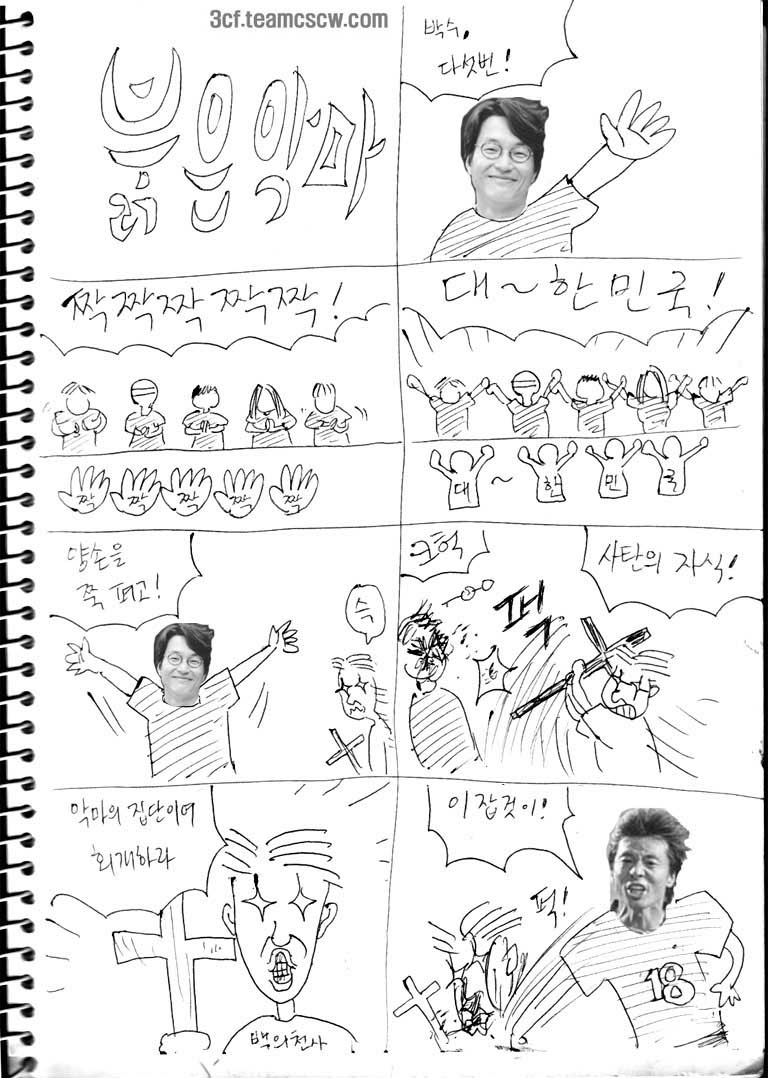 3cf.teamcscw.com
붉은악마
박수,
다섯번!
짝짝짝 짝짝!
짝 짝 짝 짝 짝
대~한민국!
대 ~ 한 민 국
양손을
쭉 펴고!
슥
크헉
퍽
사탄의 자식!
악마의 집단이여
회개하라
백의천사
이 잡것이!
퍽!
18